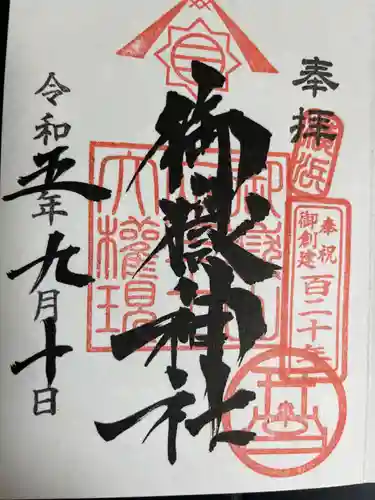 奉拝
横浜
奉祝
御創建
百二十年
御嶽神社
令和五年九月十日